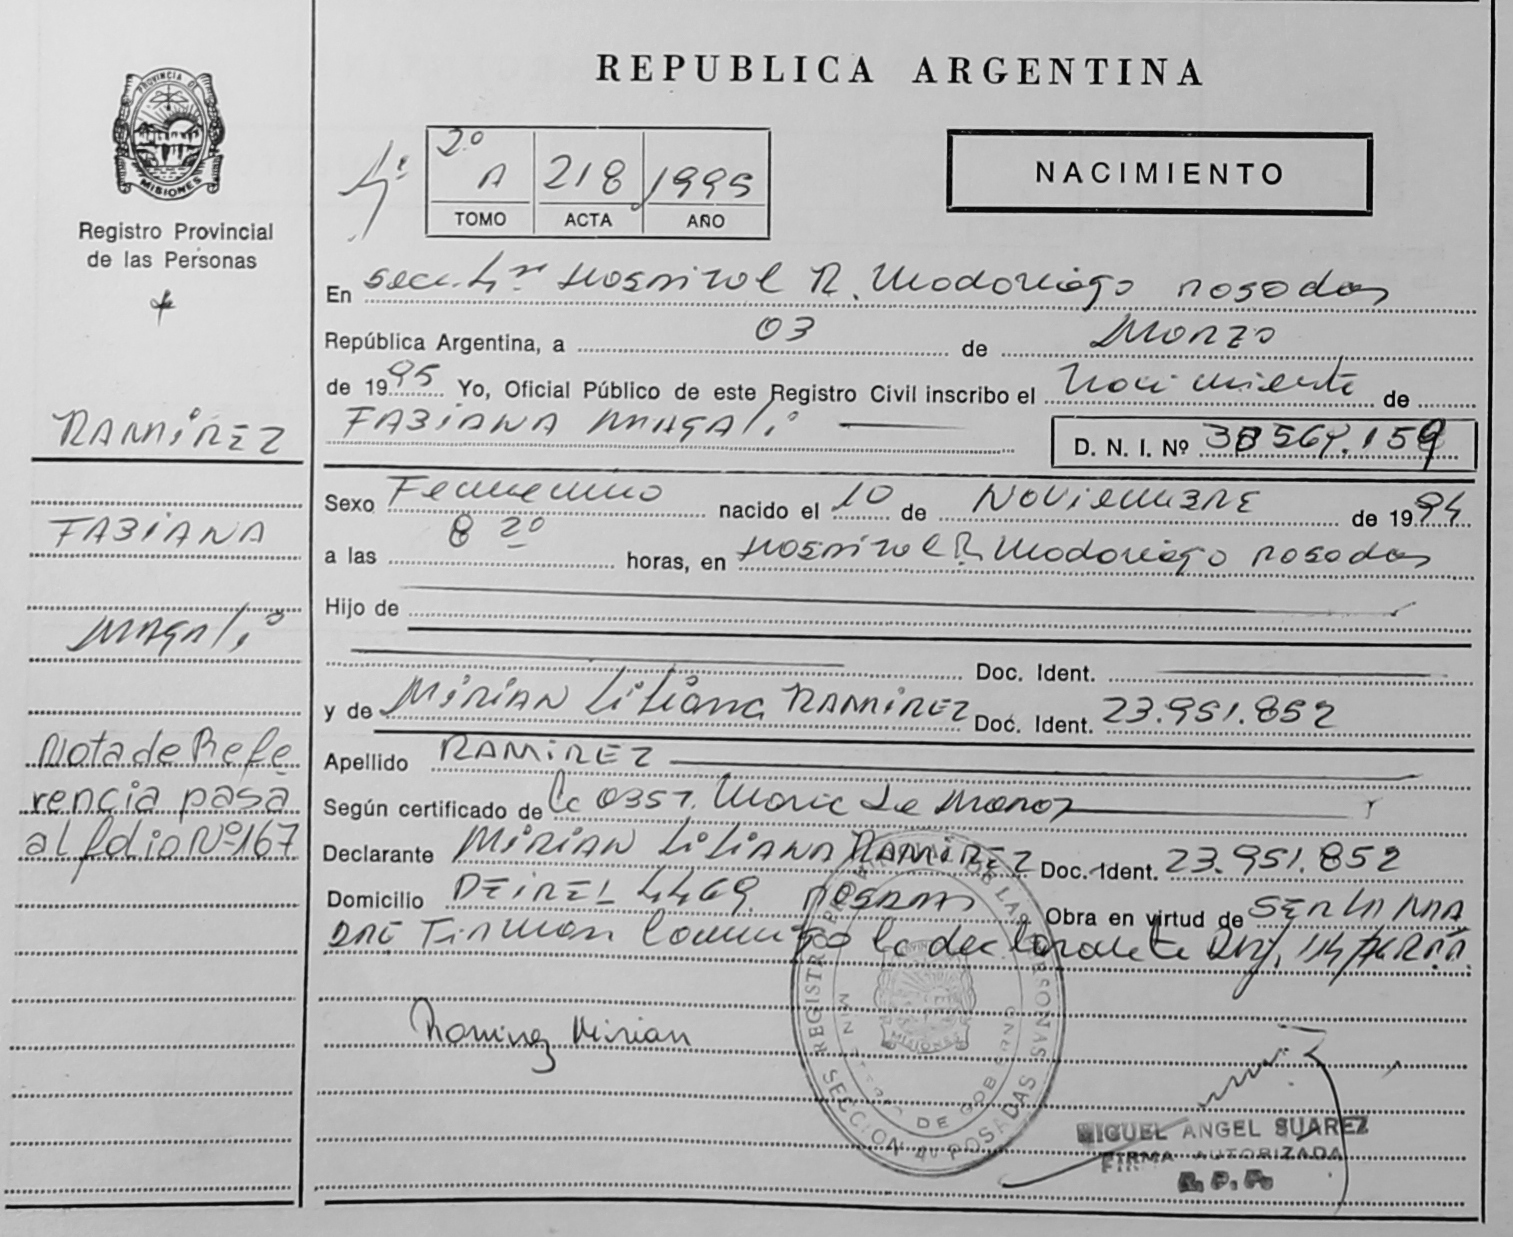 REPUBLICA ARGENTINA
PROVINCIA DE
MISIONES
Registro Provincial
de las Personas
4º
2º
A 218 1995
TOMO ACTA AÑO
NACIMIENTO
En Secc. 4ta Hospital R. Madariaga Posadas
República Argentina, a 03 de Marzo
de 1995 Yo, Oficial Público de este Registro Civil inscribo el Nacimiento de
FABIANA MAGALÍ
D. N. I. Nº
Sexo Femenino nacido el 10 de NOVIEMBRE de 1994
a las 8 20 horas, en Hospital R. Madariaga Posadas
Hijo de
Doc. Ident.
y de MIRIAN Liliana RAMIREZ Doc. Ident. 23.951.852
Apellido RAMIREZ
Según certificado de la OBST.
Declarante MIRIAN LILIANA RAMIREZ Doc. Ident. 23.951.852
Domicilio 4469 POSADAS Obra en virtud de SER LA MA
DRE Firman Conmigo la declarante
Ramirez Mirian
RAMIREZ
FABIANA
MAGALÍ
Nota de Refe
rencia pasa
al folio Nº 167
REGISTRO PROVINCIAL DE LAS PERSONAS
MINISTERIO DE GOBIERNO
MISIONES
SECCION 4ta POSADAS
MIGUEL ANGEL SUAREZ
FIRMA AUTORIZADA
R. P. P.